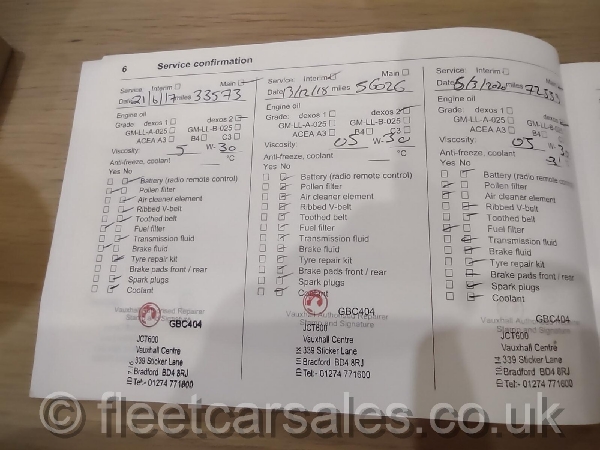 6
Service confirmation
Service: Interim Main
Date 21/6/17 miles 33573
Engine oil
Grade: dexos 1 dexos 2
GM-LL-A-025 GM-LL-B-025
ACEA A3 B4 C3
Viscosity: 5 W- 30
Anti-freeze, coolant °C
Yes No
Battery (radio remote control)
Pollen filter
Air cleaner element
Ribbed V-belt
Toothed belt
Fuel filter
Transmission fluid
Brake fluid
Tyre repair kit
Brake pads front / rear
Spark plugs
Coolant
Vauxhall Authorised Repairer
Stamp and Signature
GBC404
JCT600
Vauxhall Centre
339 Sticker Lane
Bradford BD4 8RJ
Tel:- 01274 771600
Service: Interim Main
Date 3/12/18 miles 56026
Engine oil
Grade: dexos 1 dexos 2
GM-LL-A-025 GM-LL-B-025
ACEA A3 B4 C3
Viscosity: 05 W- 30
Anti-freeze, coolant °C
Yes No
Battery (radio remote control)
Pollen filter
Air cleaner element
Ribbed V-belt
Toothed belt
Fuel filter
Transmission fluid
Brake fluid
Tyre repair kit
Brake pads front / rear
Spark plugs
Coolant
Vauxhall Authorised Repairer
Stamp and Signature
GBC404
JCT600
Vauxhall Centre
339 Sticker Lane
Bradford BD4 8RJ
Tel:- 01274 771600
Service: Interim Main
Date 5/3/2020 miles
Engine oil
Grade: dexos 1
GM-LL-A-025 GM-LL-B-025
ACEA A3 B4
Viscosity: 05 W- 30
Anti-freeze, coolant
Yes No
Battery (radio remote control)
Pollen filter
Air cleaner element
Ribbed V-belt
Toothed belt
Fuel filter
Transmission fluid
Brake fluid
Tyre repair kit
Brake pads front / rear
Spark plugs
Coolant
Stamp and Signature
GBC404
JCT600
Vauxhall Centre
339 Sticker Lane
Bradford BD4 8RJ
Tel:- 01274 771600
© fleetcarsales.co.uk